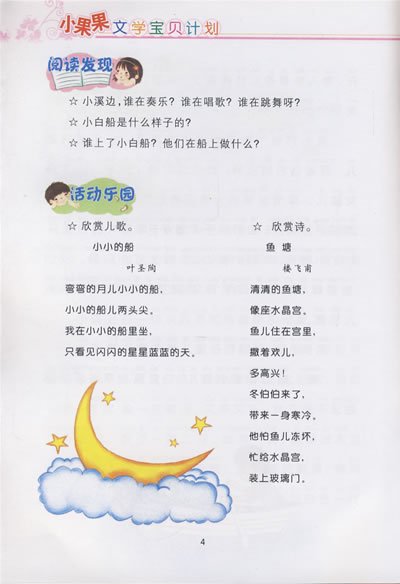 小果果文学宝贝计划
阅读发现
☆ 小溪边，谁在奏乐？谁在唱歌？谁在跳舞呀？
☆ 小白船是什么样子的？
☆ 谁上了小白船？他们在船上做什么？
活动乐园
☆ 欣赏儿歌。
小小的船
叶圣陶
弯弯的月儿小小的船，
小小的船儿两头尖。
我在小小的船里坐，
只看见闪闪的星星蓝蓝的天。
☆ 欣赏诗。
鱼 塘
楼飞甫
清清的鱼塘，
像座水晶宫。
鱼儿住在宫里，
撒着欢儿，
多高兴！
冬伯伯来了，
带来一身寒冷。
他怕鱼儿冻坏，
忙给水晶宫，
装上玻璃门。
4